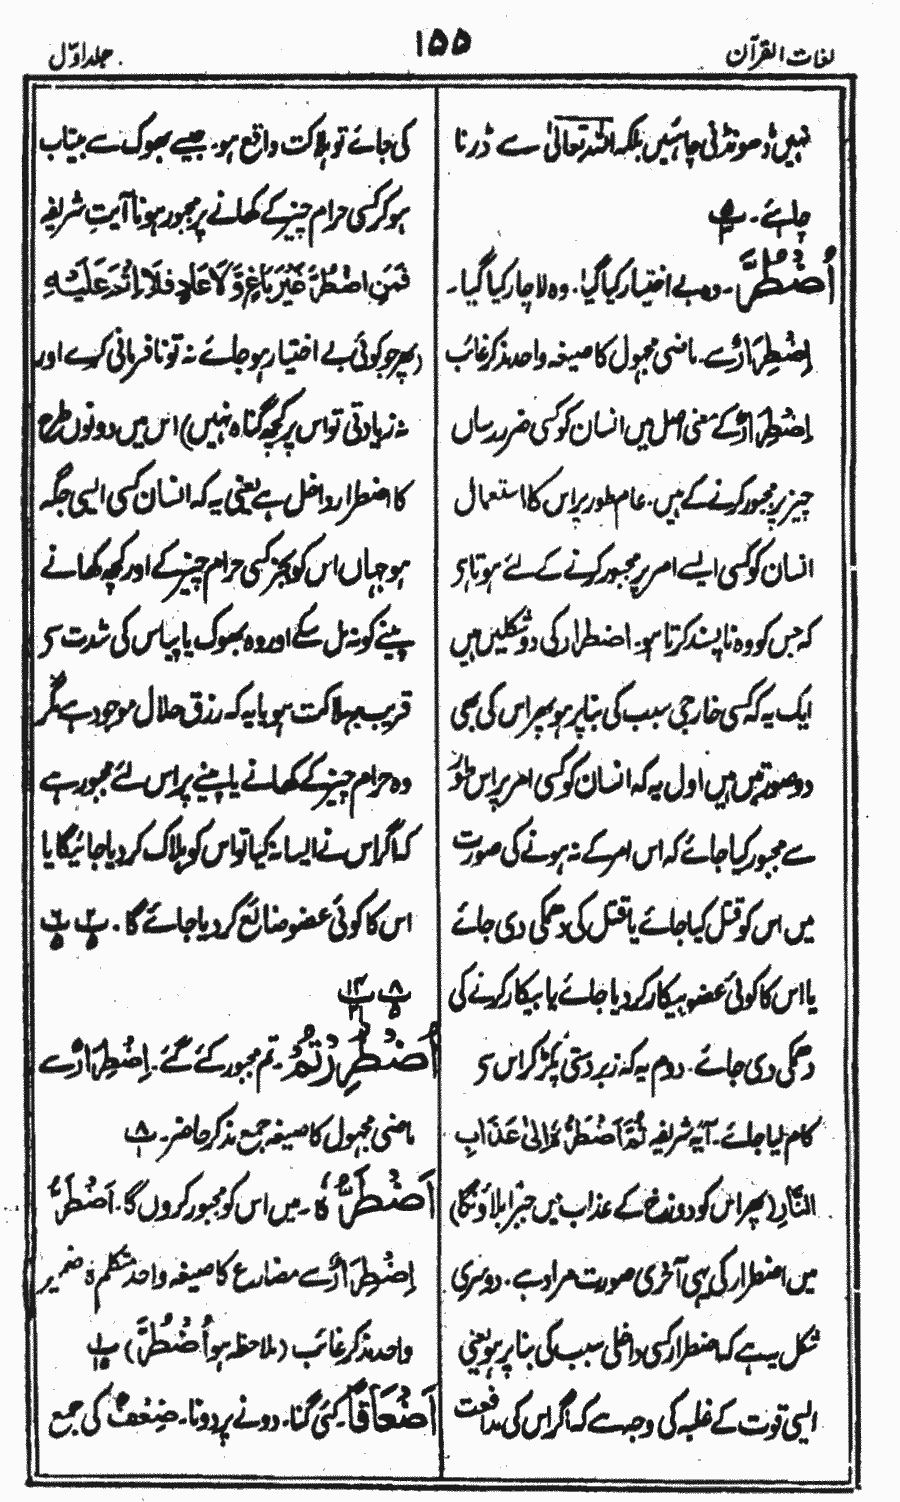 لغات القرآن
۱۵۵
جلد اوّل
نہیں ڈھونڈنی چاہئیں بلکہ اللہ تعالیٰ سے ڈرنا
چاہئے۔
اُضْطُرَّ۔ وہ بے اختیار کیا گیا۔ وہ لاچار کیا گیا۔
اِضْطِرَارٌ سے۔ ماضی مجہول کا صیغہ واحد مذکر غائب
اِضْطِرَارٌ کے معنی اصل میں انسان کو کسی ضرر رساں
چیز پر مجبور کرنے کے ہیں۔ عام طور پر اس کا استعمال
انسان کو کسی ایسے امر پر مجبور کرنے کے لئے ہوتا ہی
کہ جس کو وہ ناپسند کرتا ہو۔ اضطرار کی دو شکلیں ہیں
ایک یہ کہ کسی خارجی سبب کی بنا پر ہو پھر اس کی بھی
دو صورتیں ہیں اول یہ کہ انسان کو کسی امر پر اس طور
سے مجبور کیا جائے کہ اس امر کے نہ ہونے کی صورت
میں اس کو قتل کیا جائے یا قتل کی دھمکی دی جائے
یا اس کا کوئی عضو بیکار کر دیا جائے یا بیکار کرنے کی
دھمکی دی جائے۔ دوم یہ کہ زبردستی پکڑ کر اس سی
کام لیا جائے۔ آیہ شریفہ ثُمَّ اَضْطَرُّهٗ اِلیٰ عَذَابِ
النَّارِ (پھر اس کو دوزخ کے عذاب میں جبراً بلاؤنگا)
میں اضطرار کی یہی آخری صورت مراد ہے۔ دوسری
شکل یہ ہے کہ اضطرار کسی داخلی سبب کی بنا پر ہو یعنی
ایسی قوت کے غلبہ کی وجہ سے کہ اگر اس کی مدافعت
کی جائے تو ہلاکت واقع ہو۔ جیسے بھوک سے بیتاب
ہو کر کسی حرام چیز کے کھانے پر مجبور ہونا آیتِ شریفہ
فَمَنِ اضْطُرَّ غَيْرَ بَاغٍ وَّلَا عَادٍ فَلَا اِثْمَ عَلَيْهِ
(پھر جو کوئی بے اختیار ہو جائے نہ تو نافرمانی کرے اور
نہ زیادتی تو اس پر کچھ گناہ نہیں) اس میں دونوں طرح
کا اضطرار داخل ہے یعنی یہ کہ انسان کسی ایسی جگہ
ہو جہاں اس کو بجز کسی حرام چیز کے اور کچھ کھانے
پینے کو نہ مل سکے اور وہ بھوک یا پیاس کی شدت سی
قریب بہلاکت ہو یا یہ کہ رزق حلال موجود ہے مگر
وہ حرام چیز کے کھانے یا پینے پر اس لئے مجبور ہے
کہ اگر اس نے ایسا نہ کیا تو اس کو ہلاک کر دیا جائیگا یا
اس کا کوئی عضو ضائع کر دیا جائے گا۔
اُضْطُرِرْتُمْ۔ تم مجبور کئے گئے۔ اِضْطِرَارٌ سے
ماضی مجہول کا صیغہ جمع مذکر حاضر۔
اَضْطَرُّهٗ۔ میں اس کو مجبور کروں گا۔ اَضْطَرُّ
اِضْطِرَارٌ سے مضارع کا صیغہ واحد متکلم ہٗ ضمیر
واحد مذکر غائب (ملاحظہ ہو اُضْطُرَّ)
اَضْعَافاً۔ کئی گنا۔ دونے پر دونا۔ ضِعْفٌ کی جمع